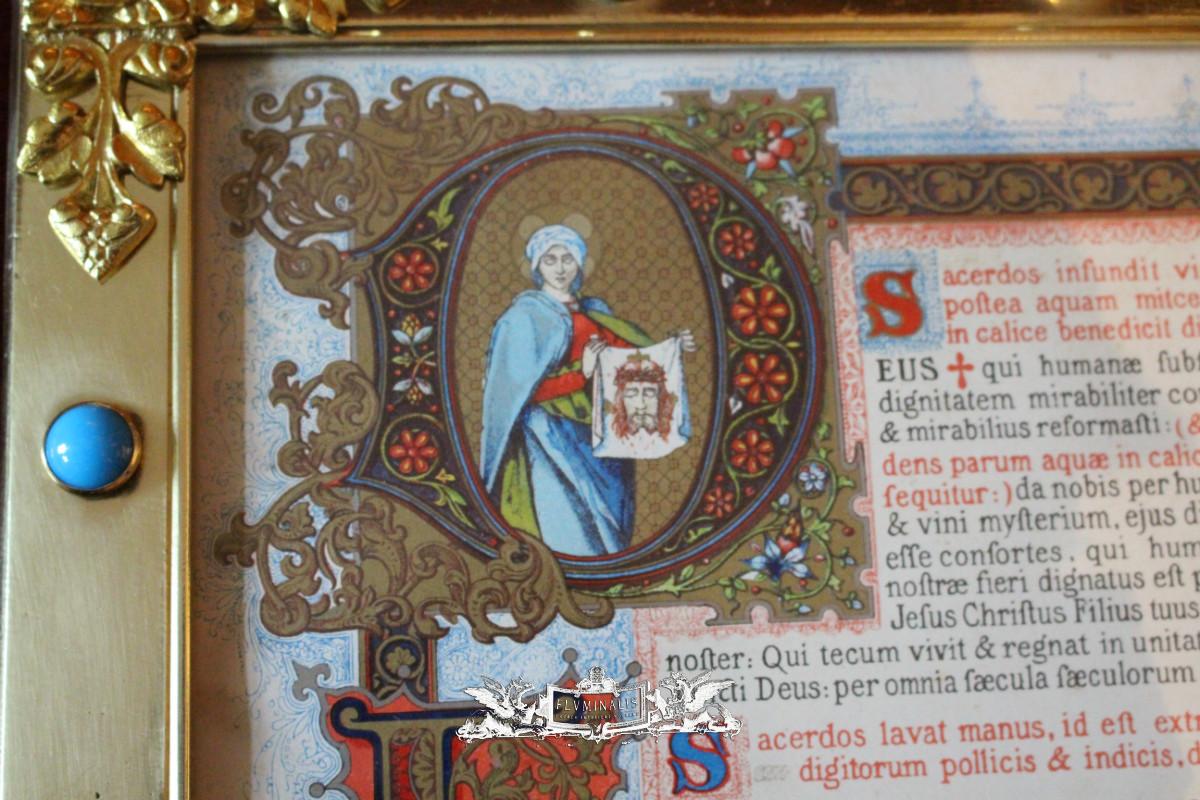 Sacerdos infundit vi
poſtea aquam mitce
in calice benedicit d
DEUS ✝ qui humanæ ſubſ
dignitatem mirabiliter co
& mirabilius reformaſti: (&
dens parum aquæ in calic
ſequitur:) da nobis per hu
& vini myſterium, ejus d
eſſe conſortes, qui hum
noſtræ fieri dignatus eſt p
Jeſus Chriſtus Filius tuus
noſter: Qui tecum vivit & regnat in unita
cti Deus: per omnia ſæcula ſæculorum
FLVMINALIS
Sacerdos lavat manus, id eſt extr
digitorum pollicis & indicis,